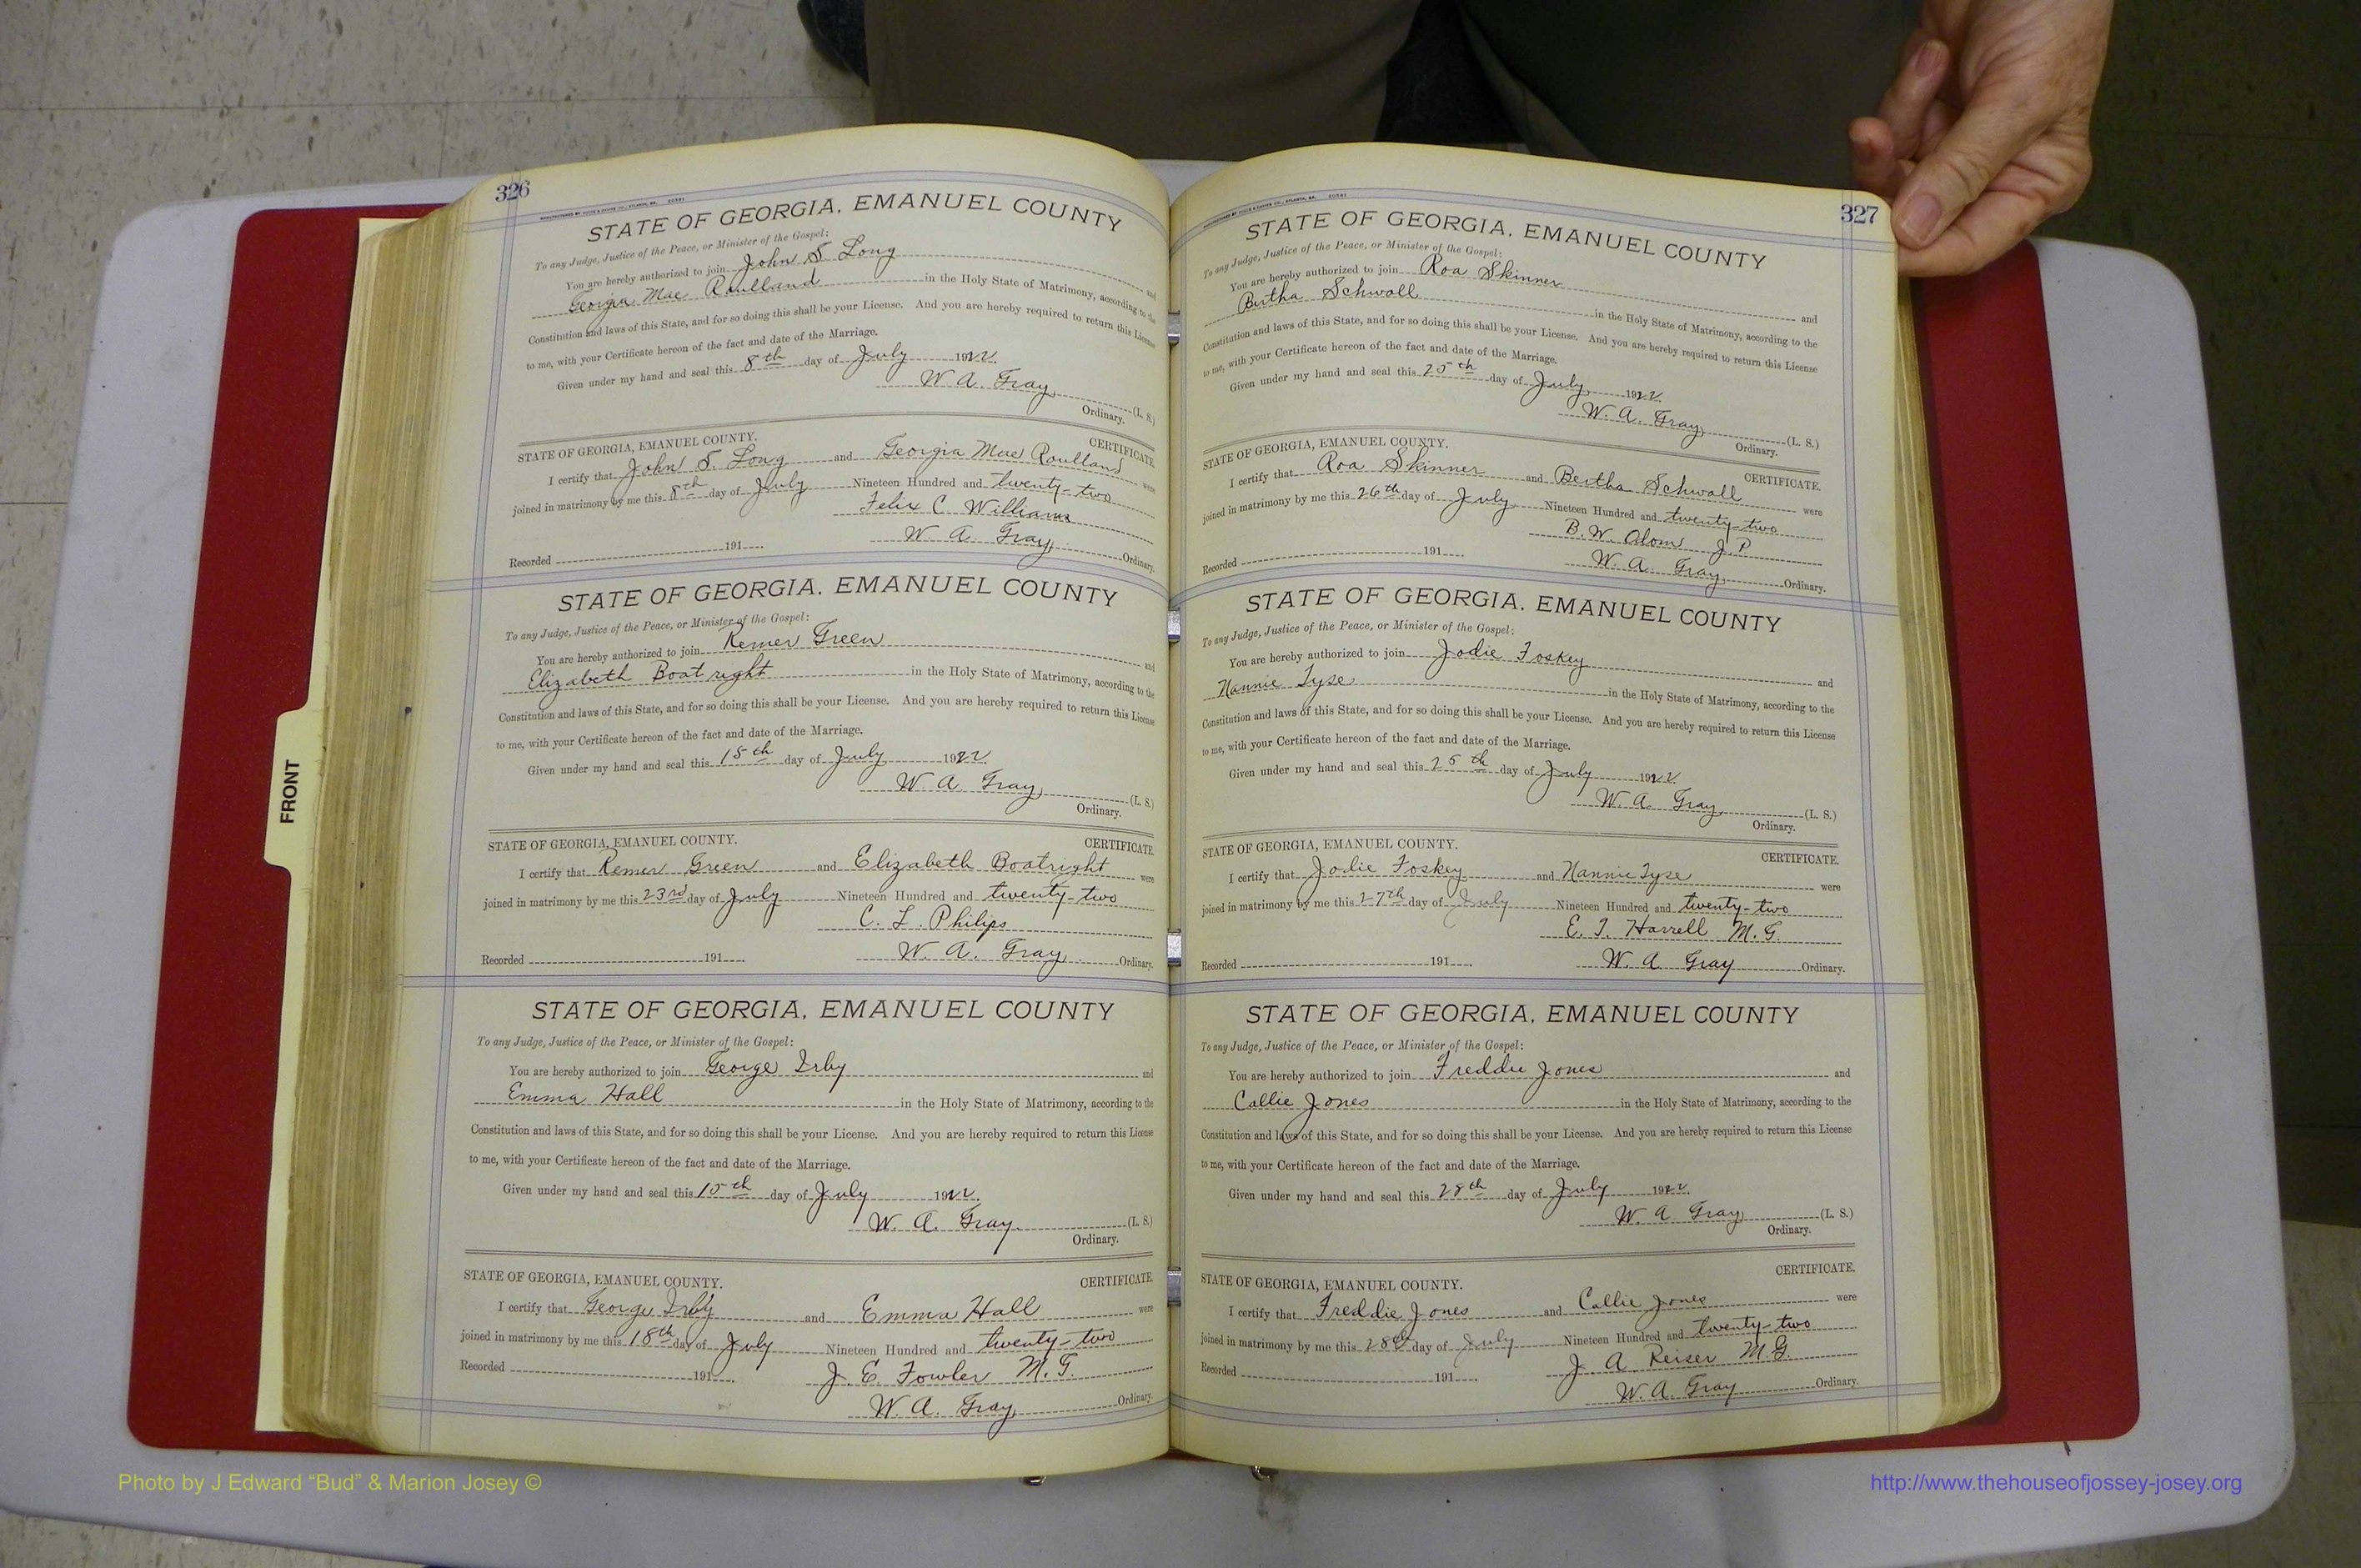 326
STATE OF GEORGIA, EMANUEL COUNTY
To any Judge, Justice of the Peace, or Minister of the Gospel:
You are hereby authorized to join John S Long and
Georgia Mae Roulland in the Holy State of Matrimony, according to the
Constitution and laws of this State, and for so doing this shall be your License. And you are hereby required to return this License
to me, with your Certificate hereon of the fact and date of the Marriage.
Given under my hand and seal this 8th day of July 1922.
W A. Gray (L. S.)
Ordinary.
STATE OF GEORGIA, EMANUEL COUNTY. CERTIFICATE
I certify that John S. Long and Georgia Mae Roulland were
joined in matrimony by me this 8th day of July Nineteen Hundred and twenty-two
Felix C Williams
Recorded 191 W A. Gray Ordinary.
STATE OF GEORGIA, EMANUEL COUNTY
To any Judge, Justice of the Peace, or Minister of the Gospel:
You are hereby authorized to join Remer Green and
Elizabeth Boatright in the Holy State of Matrimony, according to the
Constitution and laws of this State, and for so doing this shall be your License. And you are hereby required to return this License
to me, with your Certificate hereon of the fact and date of the Marriage.
Given under my hand and seal this 15th day of July 1922.
W A. Gray (L. S.)
Ordinary.
STATE OF GEORGIA, EMANUEL COUNTY. CERTIFICATE
I certify that Remer Green and Elizabeth Boatright were
joined in matrimony by me this 23rd day of July Nineteen Hundred and twenty-two
C. L. Philips
Recorded 191 W. A. Gray Ordinary.
STATE OF GEORGIA, EMANUEL COUNTY
To any Judge, Justice of the Peace, or Minister of the Gospel:
You are hereby authorized to join George Irby and
Emma Hall in the Holy State of Matrimony, according to the
Constitution and laws of this State, and for so doing this shall be your License. And you are hereby required to return this License
to me, with your Certificate hereon of the fact and date of the Marriage.
Given under my hand and seal this 15th day of July 1922.
W. A. Gray (L. S.)
Ordinary.
STATE OF GEORGIA, EMANUEL COUNTY. CERTIFICATE
I certify that George Irby and Emma Hall were
joined in matrimony by me this 18th day of July Nineteen Hundred and twenty-two
Recorded 191 J. E. Fowler M. G.
W. A. Gray Ordinary.
327
STATE OF GEORGIA, EMANUEL COUNTY
To any Judge, Justice of the Peace, or Minister of the Gospel:
You are hereby authorized to join Roa Skinner and
Bertha Schwall in the Holy State of Matrimony, according to the
Constitution and laws of this State, and for so doing this shall be your License. And you are hereby required to return this License
to me, with your Certificate hereon of the fact and date of the Marriage.
Given under my hand and seal this 25th day of July 1922.
W. A. Gray (L. S.)
Ordinary.
STATE OF GEORGIA, EMANUEL COUNTY. CERTIFICATE.
I certify that Roa Skinner and Bertha Schwall were
joined in matrimony by me this 26th day of July Nineteen Hundred and twenty-two
B. W. J. P
Recorded 191 W. A. Gray Ordinary.
STATE OF GEORGIA, EMANUEL COUNTY
To any Judge, Justice of the Peace, or Minister of the Gospel:
You are hereby authorized to join Jodie Foskey and
Nannie Tyse in the Holy State of Matrimony, according to the
Constitution and laws of this State, and for so doing this shall be your License. And you are hereby required to return this License
to me, with your Certificate hereon of the fact and date of the Marriage.
Given under my hand and seal this 25th day of July 1922.
W. A. Gray (L. S.)
Ordinary.
STATE OF GEORGIA, EMANUEL COUNTY. CERTIFICATE.
I certify that Jodie Foskey and Nannie Tyse were
joined in matrimony by me this 27th day of July Nineteen Hundred and twenty-two
E. T. Harrell M. G.
Recorded 191 W. A Gray Ordinary.
STATE OF GEORGIA, EMANUEL COUNTY
To any Judge, Justice of the Peace, or Minister of the Gospel:
You are hereby authorized to join Freddie Jones and
Callie Jones in the Holy State of Matrimony, according to the
Constitution and laws of this State, and for so doing this shall be your License. And you are hereby required to return this License
to me, with your Certificate hereon of the fact and date of the Marriage.
Given under my hand and seal this 28th day of July 1922.
W. A Gray (L. S.)
Ordinary.
STATE OF GEORGIA, EMANUEL COUNTY. CERTIFICATE.
I certify that Freddie Jones and Callie Jones were
joined in matrimony by me this 28th day of July Nineteen Hundred and twenty-two
Recorded 191 J. A Reiser M. G.
W. A. Gray Ordinary.
FRONT
Photo by J Edward “Bud” & Marion Josey ©
http://www.thehouseofjossey-josey.org